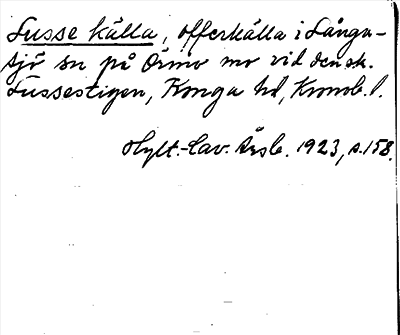 Susse källa, offerkälla i Långa-
sjö sn på Örmo mo vid den sk.
Sussestigen, Konga hd, Kronob. l.
Hylt.-Cav. Årsb. 1923, s. 158.